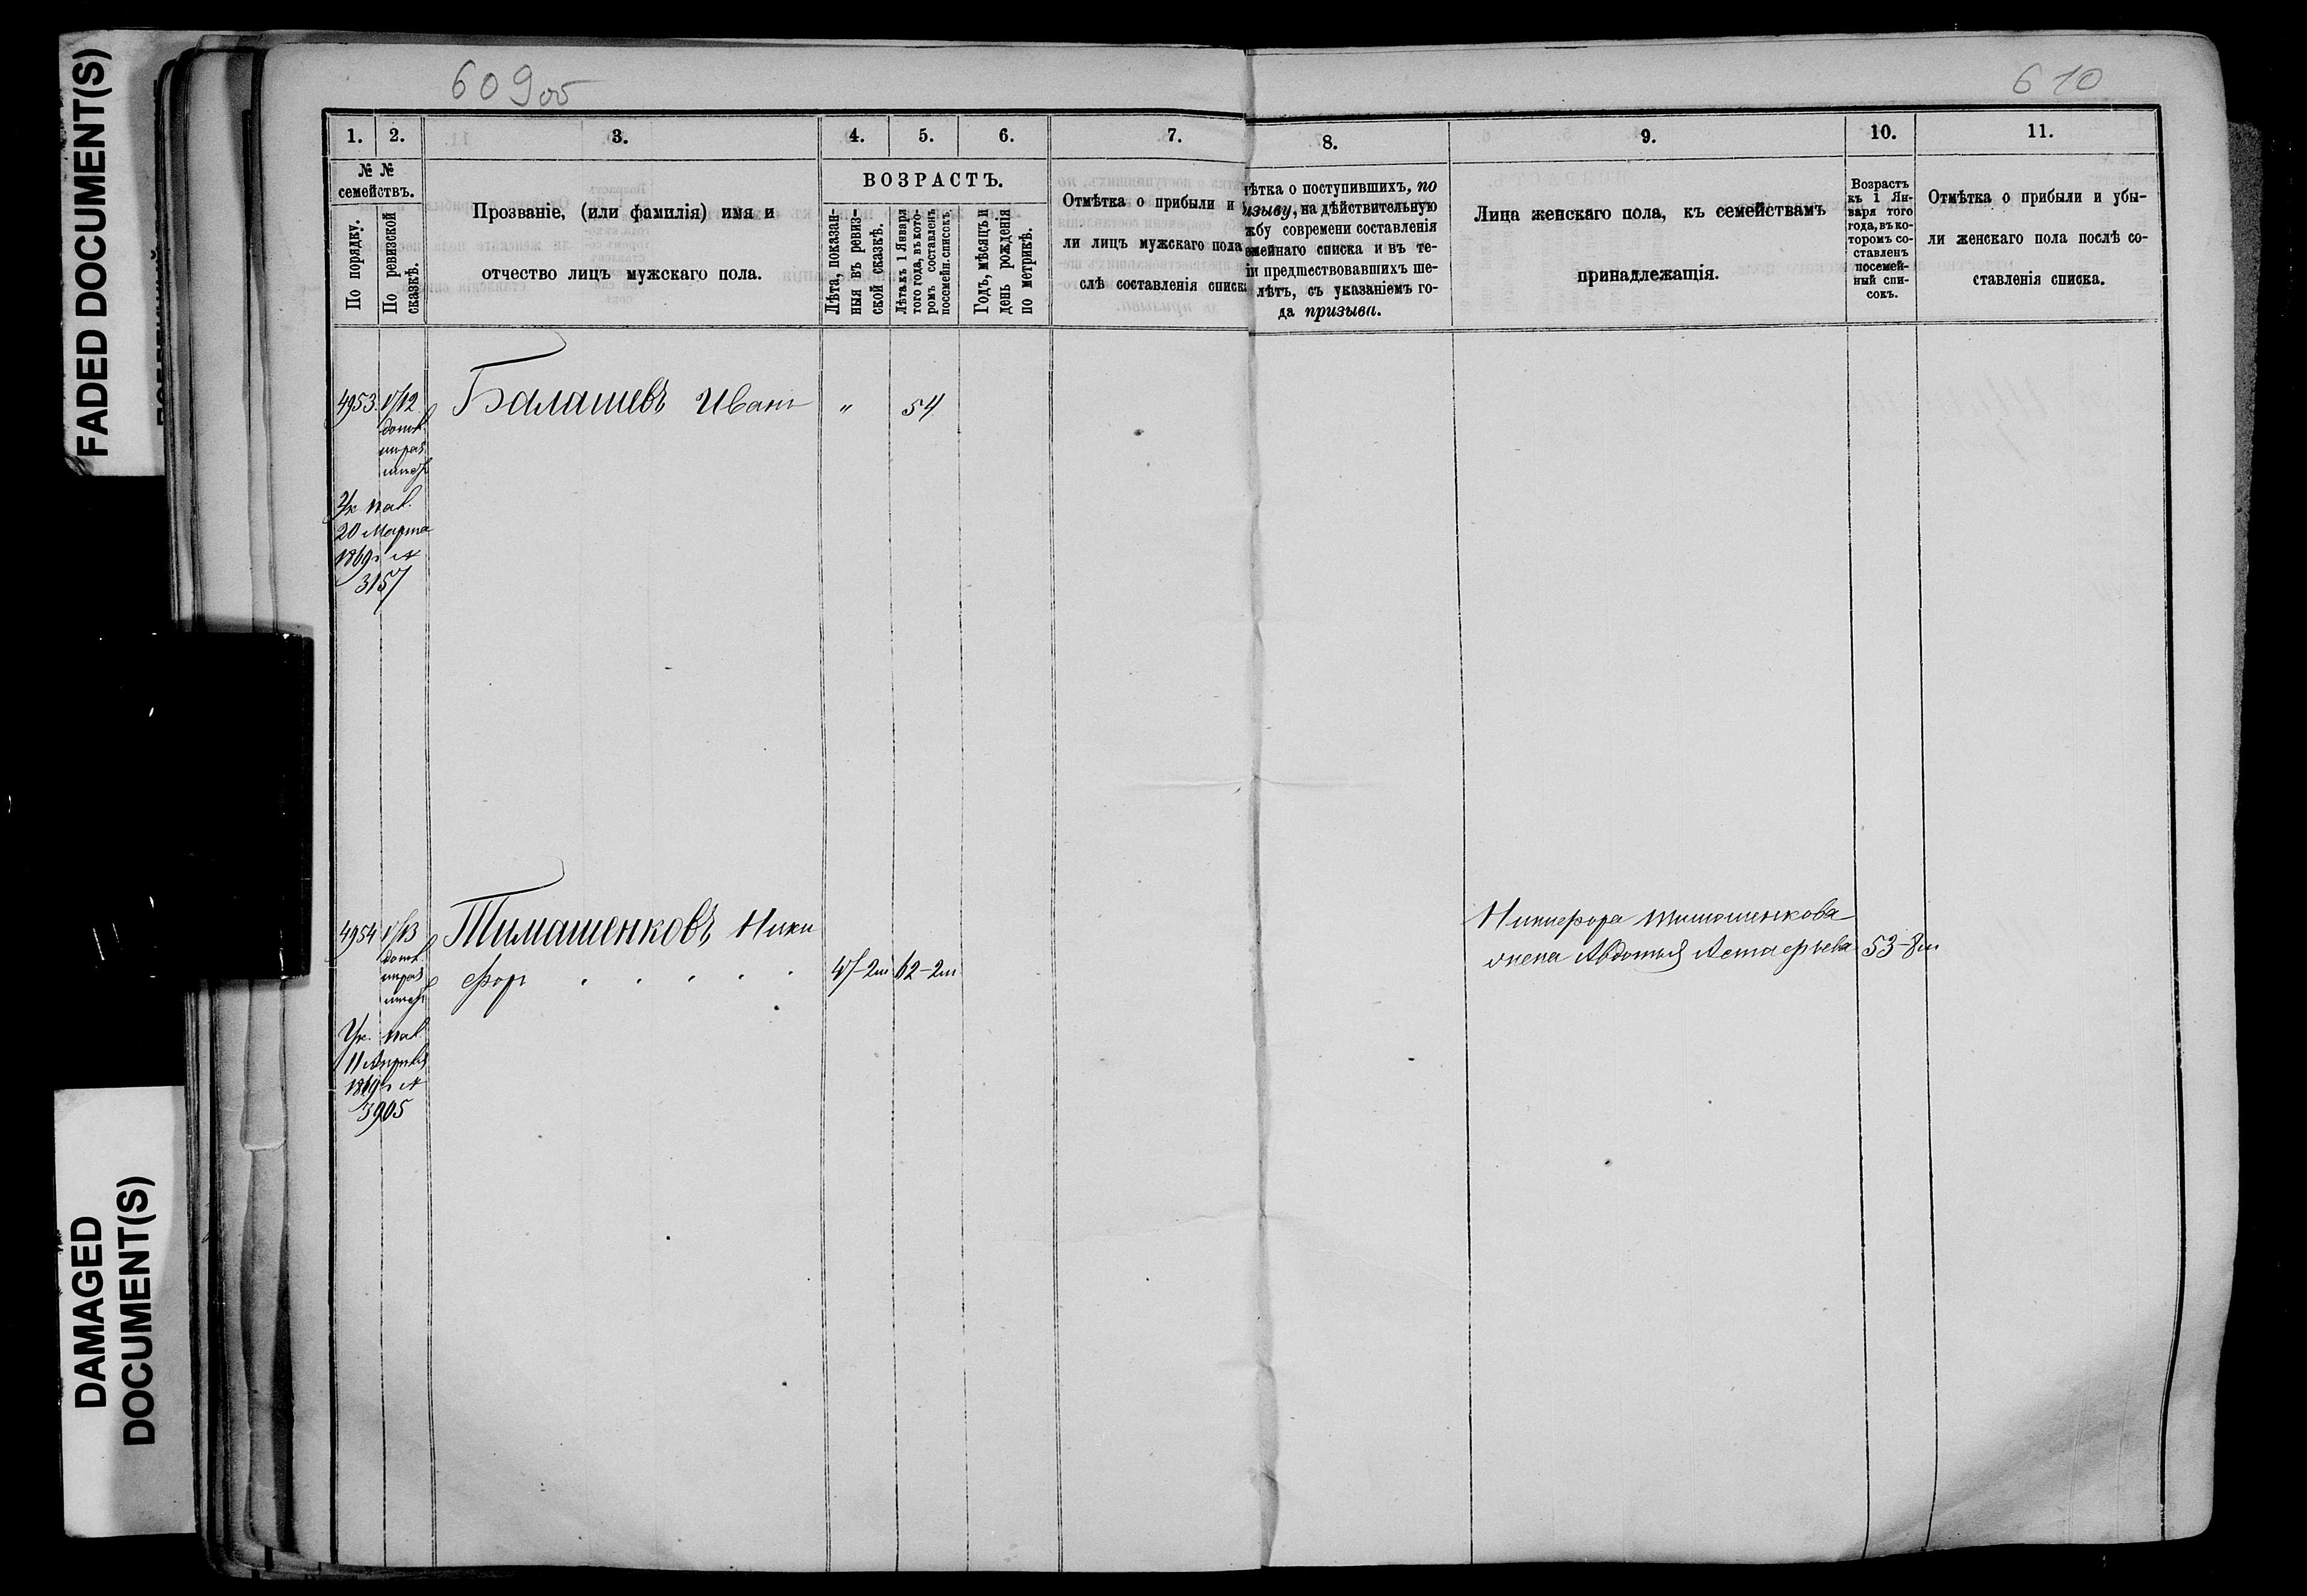 FADED DOCUMENT(S)
DAMAGED
DOCUMENT(S)
609об
610
1. 2. 3. 4. 5. 6. 7.
№ №
семействъ.
По порядку.
По ревизской
сказкѣ.
Прозваніе, (или фамилія) имя и
отчество лицъ мужскаго пола.
ВОЗРАСТЪ.
Лѣта, показан-
ныя въ ревиз-
ской сказкѣ.
Лѣта къ 1 Января
того года, въ кото-
ромъ составленъ
посемейн. списокъ.
Годъ, мѣсяцъ и
день рожденія
по метрикѣ.
Отмѣтка о прибыли и
ли лицъ мужскаго пола
слѣ составленія списк
8. 9. 10. 11.
ѣтка о поступившихъ, по
изыву, на дѣйствительную
жбу современи составленія
емейнаго списка и въ те-
іи предшествовавшихъ ше-
лѣтъ, съ указаніемъ го-
да призыва.
Лица женскаго пола, къ семействамъ
принадлежащія.
Возрастъ
къ 1 Ян-
варя того
года, въ ко-
торомъ со-
ставленъ
посемей-
ный спи-
сокъ.
Отмѣтка о прибыли и убы-
ли женскаго пола послѣ со-
ставленія списка.
4953. Балашевъ Иванъ " 54
Ук. пал.
20 Марта
1869 г №
3157
4954 Тимашенковъ Ники
форъ 62-2м
Ук. пал.
11 Апрѣля
1869 г №
3905
Никифора Тимошенкова
жена Авдотья Астафьева 53-8м